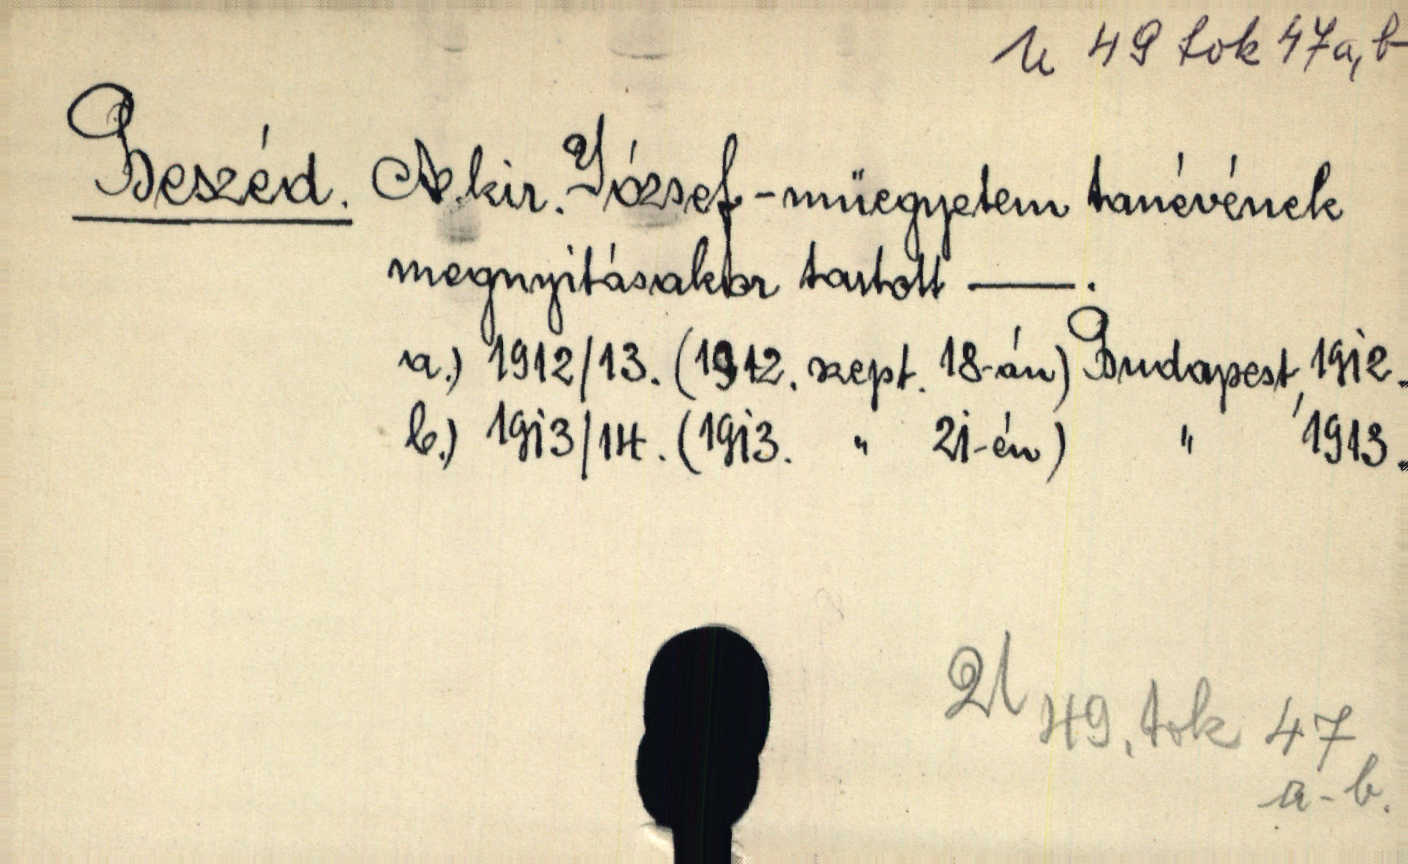 U 49 tok 47a,b
Beszéd. A kir. József-műegyetem tanévének
megnyitásakor tartott ——.
a.) 1912/13. (1912. szept. 18-án) Budapest, 1912.
b.) 1913/14. (1913. " 21-én) " 1913.
U 49. tok 47
a-b.